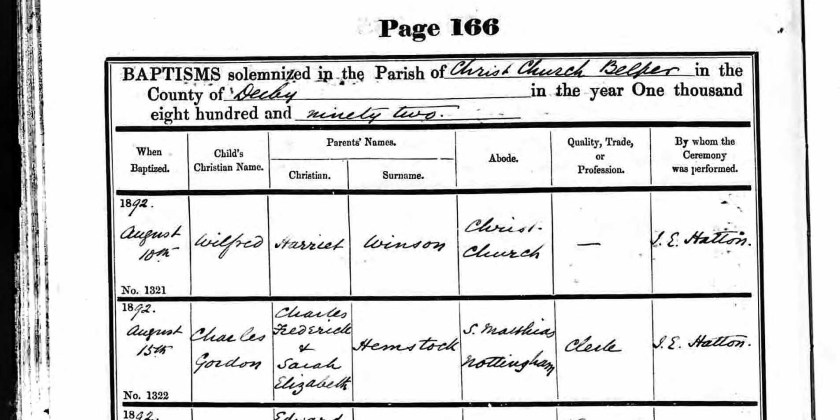 Page 166
BAPTISMS solemnized in the Parish of Christ Church Belper in the
County of Derby in the year One thousand
eight hundred and ninety two.
When Baptized.
Child's Christian Name.
Parents' Names.
Christian.
Surname.
Abode.
Quality, Trade, or Profession.
By whom the Ceremony was performed.
1892.
August
10th
No. 1321
Wilfred
Harriet
Winson
Christ-
Church
—
J. E. Hatton.
1892.
August
15th
No. 1322
Charles
Gordon
Charles
Frederick
&
Sarah
Elizabeth
Hemstock
S. Matthias
Nottingham
Clerk
J. E. Hatton.
1892.
Edward